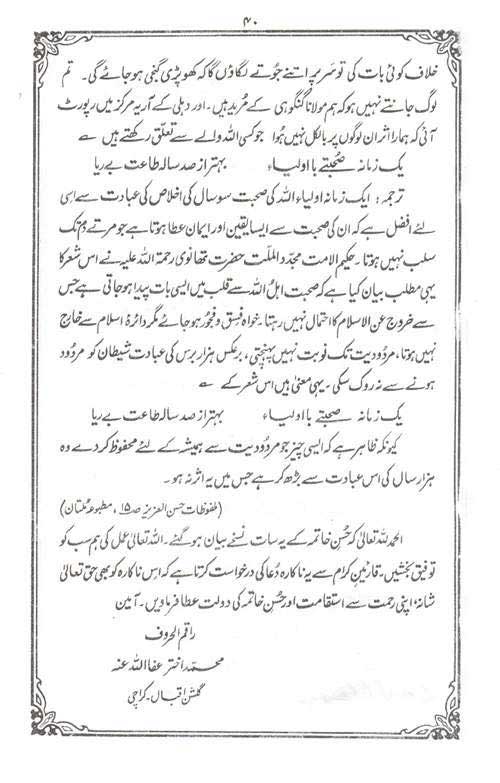 ۴۰
خلاف کوئی بات کی تو سر پر اتنے جُوتے لگاؤں گا کہ کھوپڑی گنجی ہو جائے گی۔ تم
لوگ جانتے نہیں ہو کہ ہم مولانا گنگوہی کے مُرید ہیں۔ اور دہلی کے آریہ مرکز میں رپورٹ
آئی کہ ہمارا اثر ان لوگوں پر بالکل نہیں ہُوا جو کسی اللہ والے سے تعلّق رکھتے ہیں ؎
یک زمانہ صحبتے با اولیاء بہتر از صد سالہ طاعت بے ریا
ترجمہ: ایک زمانہ اولیاء اللہ کی صحبت سو سال کی اخلاص کی عبادت سے اسی
لئے افضل ہے کہ ان کی صحبت سے ایسا یقین اور ایمان عطا ہوتا ہے جو مرتے دم تک
سلب نہیں ہوتا۔ حکیم الامت مجدّد الملّت حضرت تھانوی رحمۃ اللہ علیہ نے اس شعر کا
یہی مطلب بیان کیا ہے کہ صحبت اہلُ اللہ سے قلب میں ایسی بات پیدا ہو جاتی ہے جس
سے خروج عن الاسلام کا احتمال نہیں رہتا۔ خواہ فسِق و فجُور ہو جائے مگر دائرۂ اسلام سے خارج
نہیں ہوتا، مردُودیت تک نوبت نہیں پہنچتی، برعکس ہزار برس کی عبادت شیطان کو مردُود
ہونے سے نہ روک سکی۔ یہی معنیٰ ہیں اس شعر کے ؎
یک زمانہ صحبتے با اولیاء بہتر از صد سالہ طاعت بے ریا
کیونکہ ظاہر ہے کہ ایسی چیز جو مردُودیت سے ہمیشہ کے لئے محفوظ کر دے وہ
ہزار سال کی اس عبادت سے بڑھ کر ہے جس میں یہ اثر نہ ہو۔
(ملفوظات حسن العزیز صـ ۱۵، مطبوعہ مُلتان)
الحمد للہ تعالیٰ کہ حُسنِ خاتمہ کے یہ سات نسخے بیان ہو گئے۔ اللہ تعالیٰ عمل کی ہم سب کو
توفیق بخشیں۔ قارئین کرام سے یہ ناکارہ دُعا کی درخواست کرتا ہے کہ اس ناکارہ کو بھی حق تعالیٰ
شانہٗ اپنی رحمت سے استقامت اور حُسن خاتمہ کی دولت عطا فرماویں۔ آمین
راقم الحروف
محمد اختر عفا اللہ عنہ
گلشن اقبال۔ کراچی